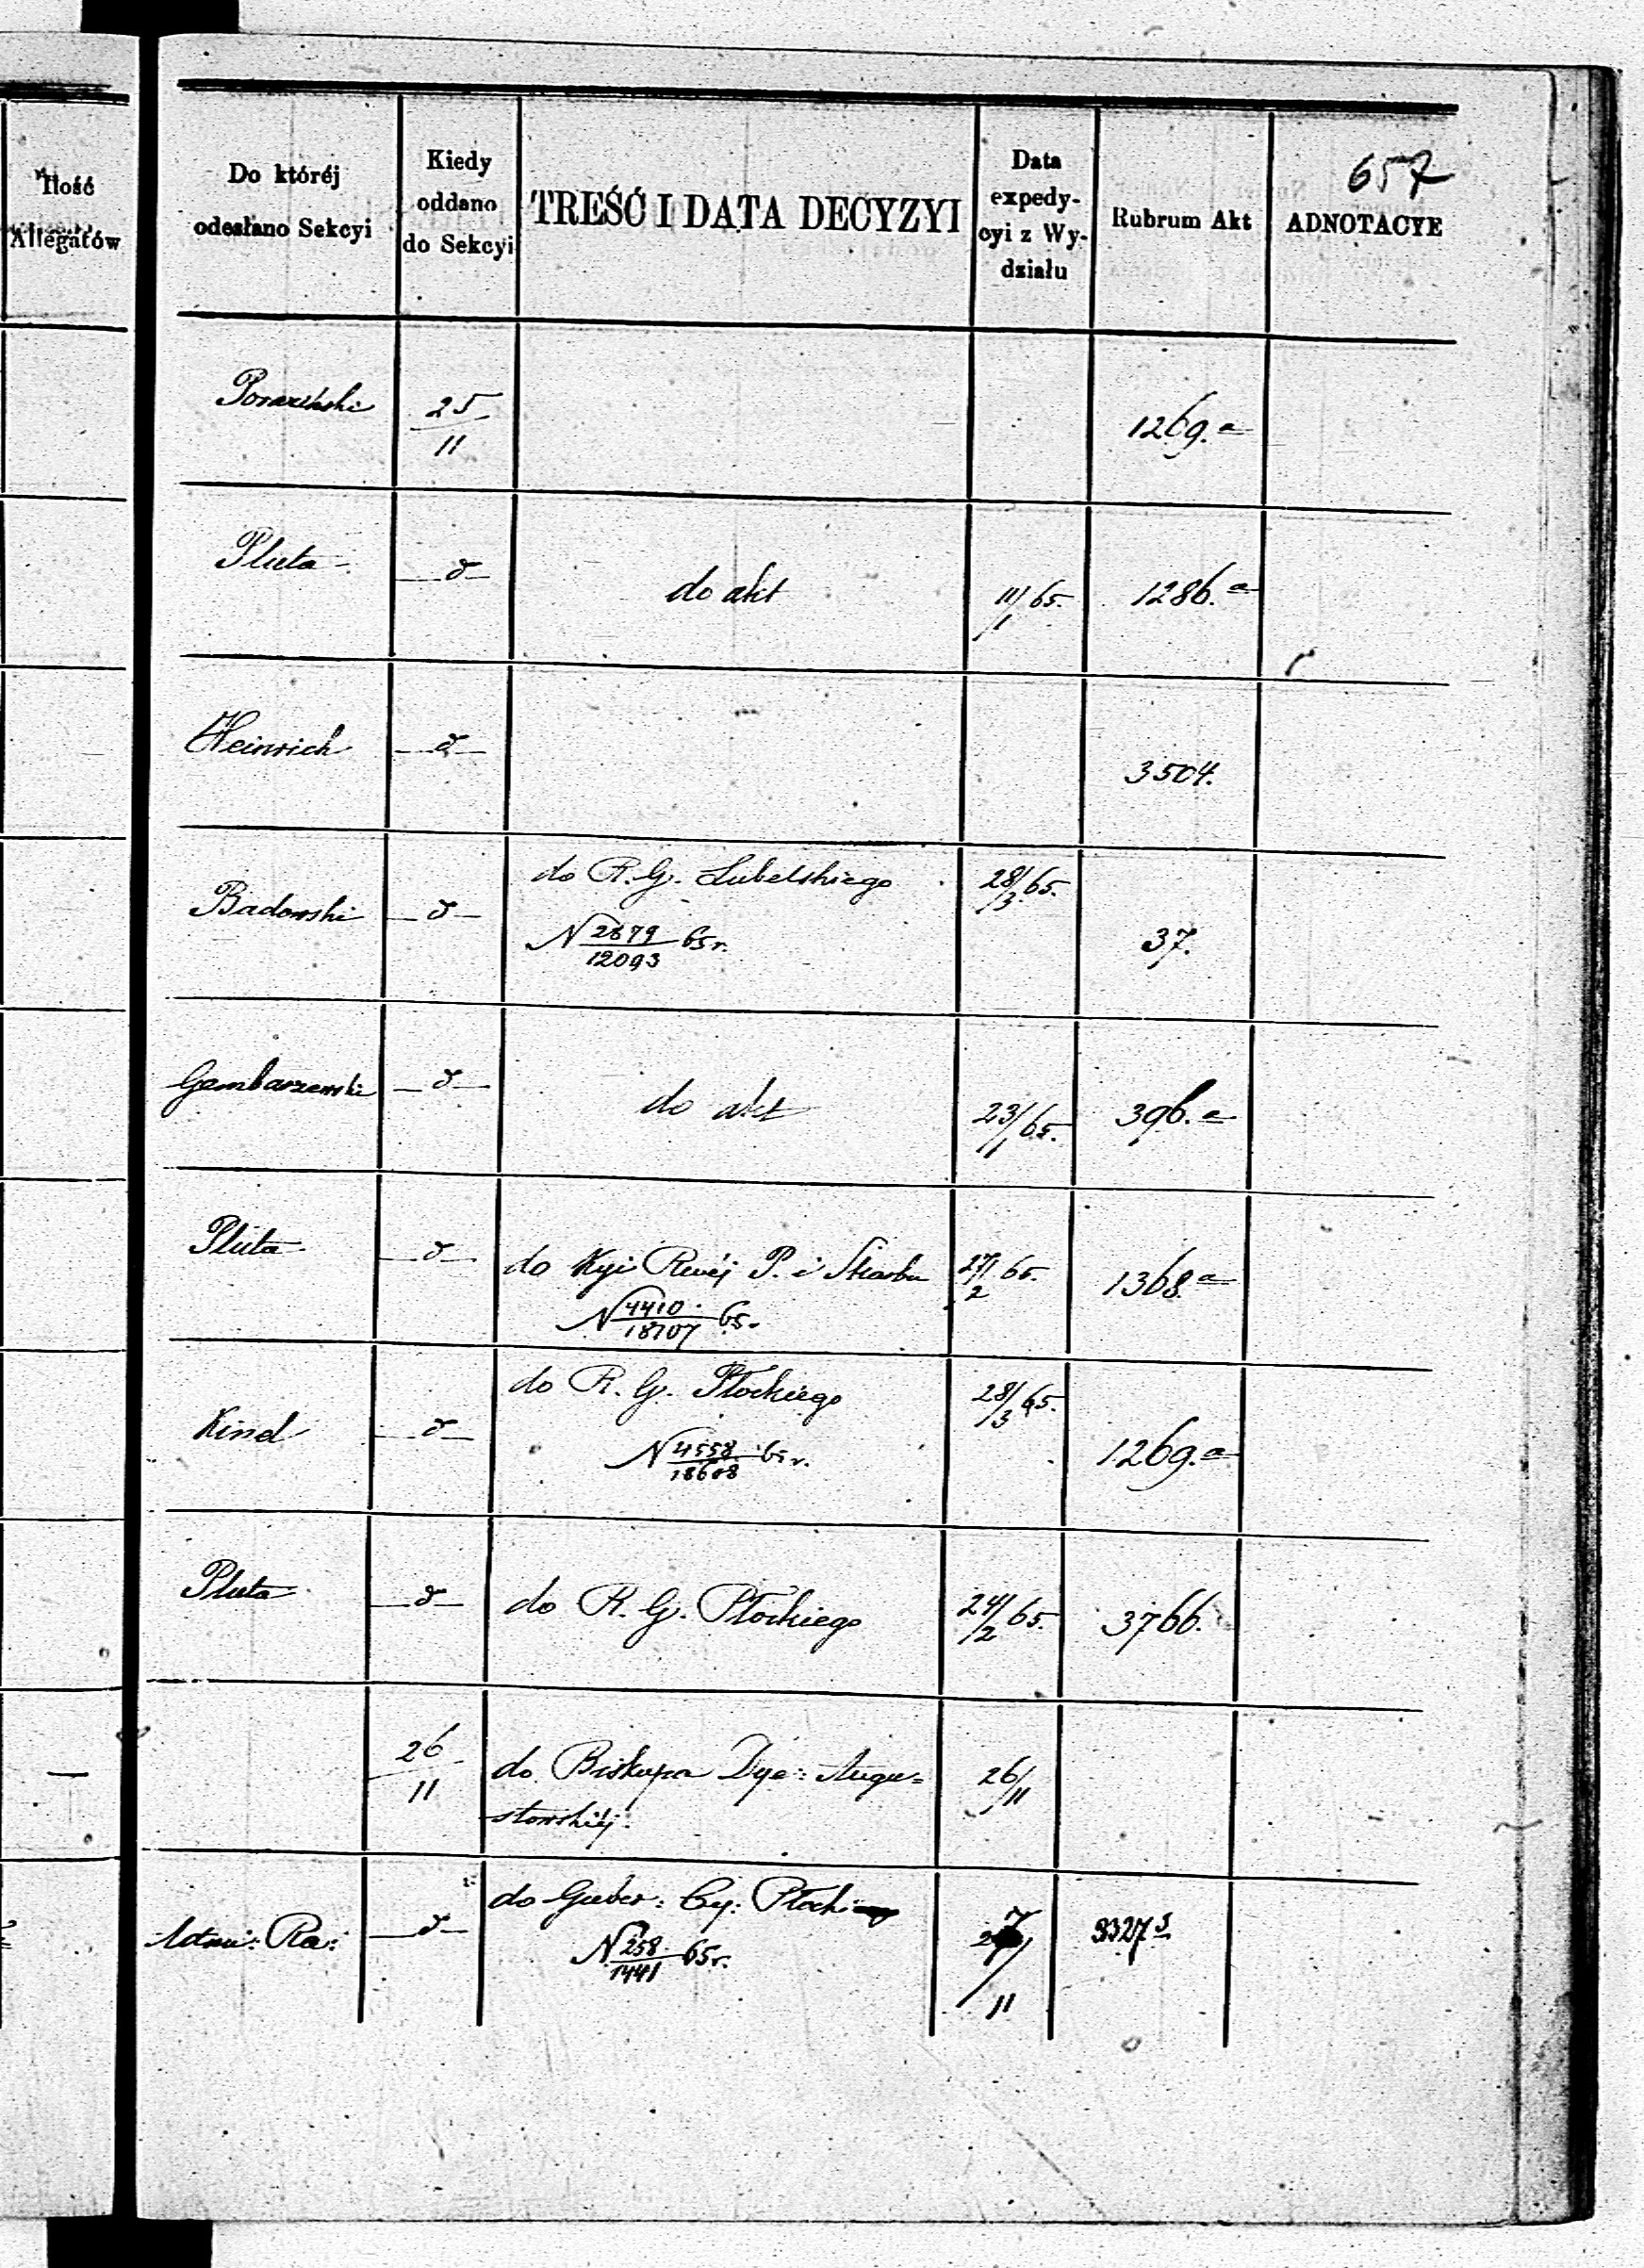 Ilość
Allegatów
Do któréj
odesłano Sekcyi
Kiedy
oddano
do Sekcyi
TREŚĆ I DATA DECYZYI
Data
expedy-
cyi z Wy-
działu
Rubrum Akt
657
ADNOTACYE
25
11
1269.a
Pluta
do akt
11/1 65.
1286.a
Heinrich
3504.
Badowski
do R. G. Lubelskiego
N 2879/12093 65 r.
28/3 65.
37.
Gembarzewski
do akt
23/11 65.
396.a
Pluta
do Kyi Rwéj P. i Skarbu
N 4410/18707 65.
27/2 65.
1368.a
Kind
do R. G. Płockiego
N 4558/18608 65 r.
28/3 65.
1269.a
Pluta
do R. G. Płockiego
24/2 65.
3766.
26
11
do Biskupa Dye: Augu=
stowskiéj.
26/11
do Guber: Cy:
N 258/1441 65 r.
27/11
3327